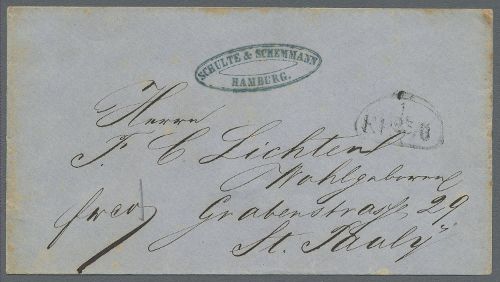 SCHULTE & SCHEMMANN
HAMBURG.
Herrn
F. C. Lichten
Wohlgeboren
franco
Grabenstrasse 29
St. Pauly